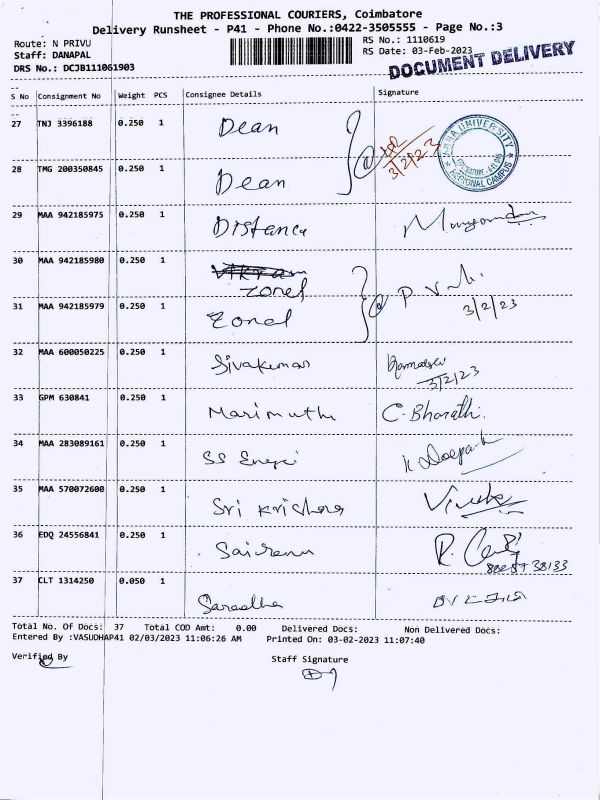 THE PROFESSIONAL COURIERS, Coimbatore
Delivery Runsheet - P41 - Phone No.:0422-3505555 - Page No.:3
Route: N PRIVU
RS No.: 1110619
Staff: DANAPAL
RS Date: 03-Feb-2023
DRS No.: DCJB111061903
DOCUMENT DELIVERY
S No Consignment No Weight PCS Consignee Details Signature
27 TNJ 3396188 0.250 1 Dean
3/2/23
ANNA UNIVERSITY
REGIONAL CAMPUS
28 TMG 200350845 0.250 1 Dean
29 MAA 942185975 0.250 1 Distance
30 MAA 942185980 0.250 1 Zonel
31 MAA 942185979 0.250 1 Zonel
3/2/23
32 MAA 600050225 0.250 1 Sivakumar
3/2/23
33 GPM 630841 0.250 1 Marimuthu C. Bharathi.
34 MAA 283089161 0.250 1 SS Deepak
35 MAA 570072600 0.250 1 Sri Krishna
36 EDQ 24556841 0.250 1 Sairenu
37 CLT 1314250 0.050 1 Saradha
Total No. Of Docs: 37 Total COD Amt: 0.00 Delivered Docs: Non Delivered Docs:
Entered By :VASUDHAP41 02/03/2023 11:06:26 AM Printed On: 03-02-2023 11:07:40
Verified By Staff Signature